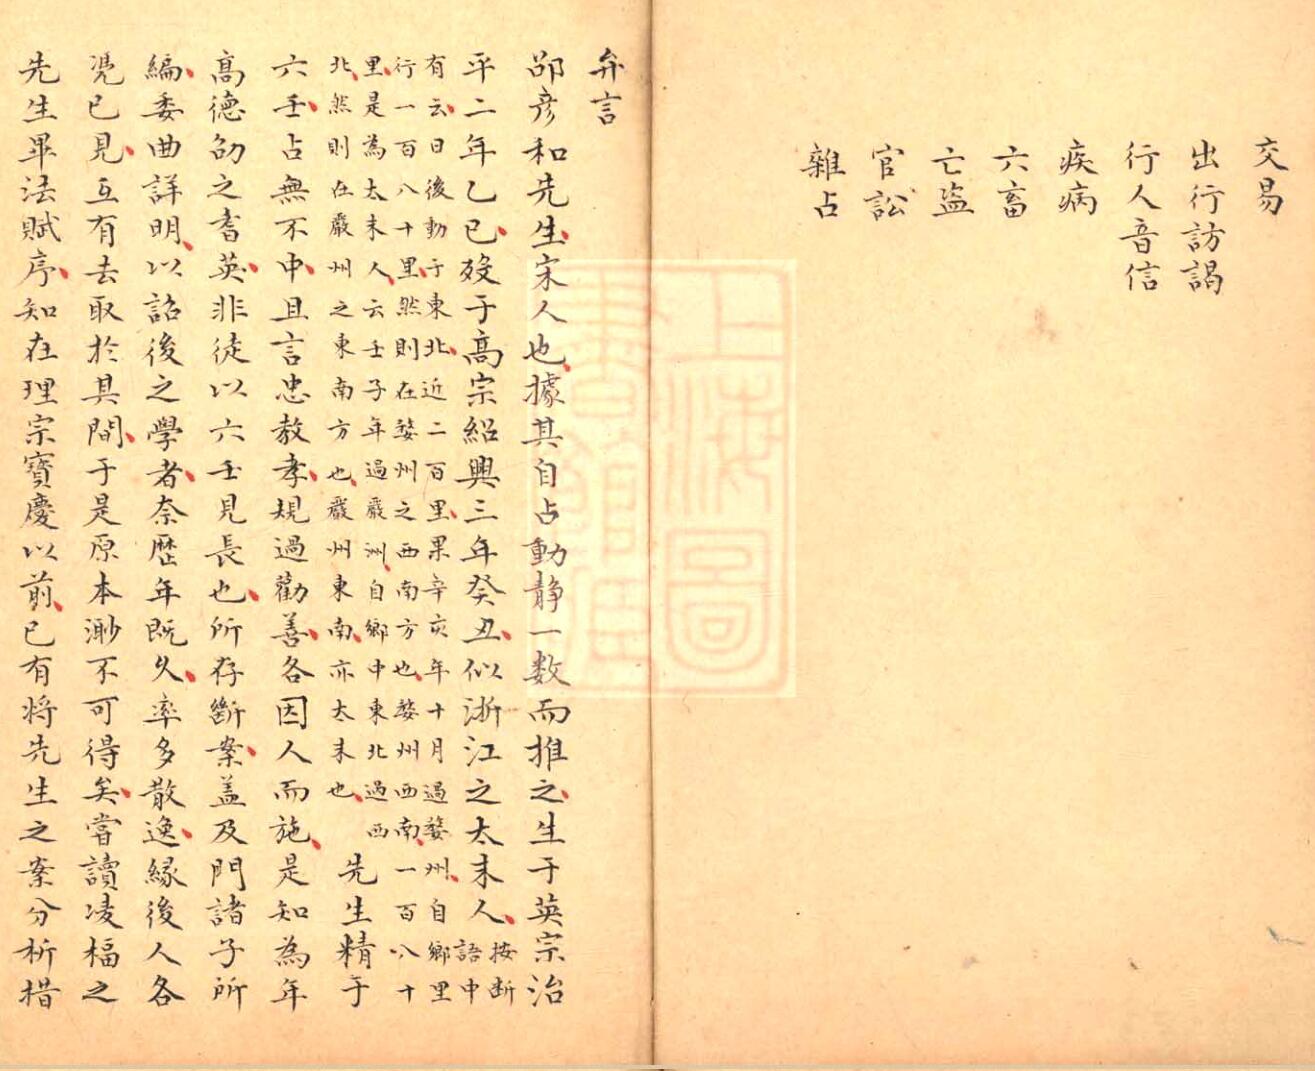 交易
出行訪謁
行人音信
疾病
六畜
亡盗
官訟
雜占
弁言
邵彦和先生宋人也據其自占動静一数而推之生于英宗治
平二年乙巳殁于高宗紹興三年癸丑似浙江之太末人按断語中
有云日後動于東北近二百里果辛亥年十月過婺州自鄉里
行一百八十里然則在婺州之西南方也婺州西南一百八十
里是為太末人云壬子年過嚴洲自鄉中東北過西
北然則在嚴州之東南方也嚴州東南亦太末也
先生精于
六壬占無不中且言忠教孝規過勸善各因人而施是知為年
高德劭之耆英非徒以六壬見長也所存斷案盖及門諸子所
編委曲詳明以詔後之學者奈歴年既久率多散逸緣後人各
凴已見互有去取於其間于是原本渺不可得矣嘗讀凌楅之
先生畢法賦序知在理宗寶慶以前已有将先生之案分析措
上海圖書館藏